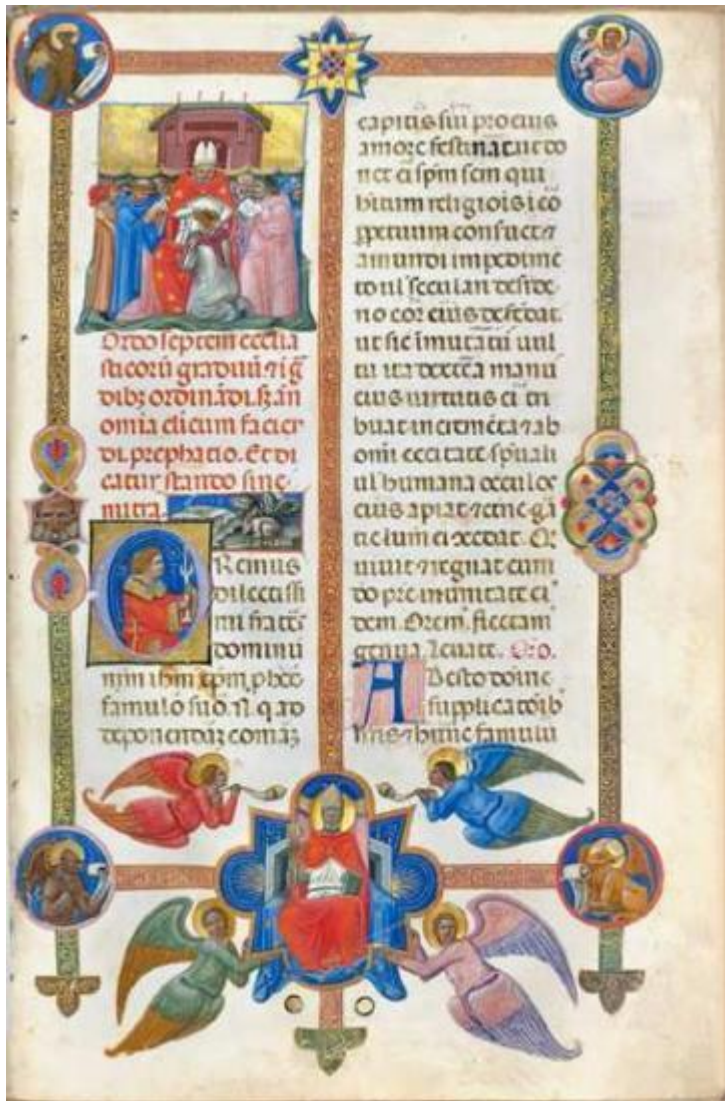 Ordo septem ecclia
sticorū graduū ⁊ i q̄
dibȝ ordinādi. Iȝ an̄
omia clicum facien
di. prephatio. Et di
catur stando sine
mitra.
ORemus
dilectissi
mi fratēs
dominū
nrm ihm xpm. p hoc
famulo suo .N. q̄ ad
deponendaȝ comāȝ
capitis sui pro eius
amore festinat ut do
net ei spm scm qui
bitum religiōis i eo
ppetuum conseruet ⁊
a mundi impedimē
to ul seculari deside
rio cor eius defēdat.
ut sic īmutatū uul
tu ita dextera manu
eius uirtutis ei tri
buat incremēta ⁊ ab
omi cecitate spūali
ul humana oculos
eius apiat ⁊ eterne gā
tie lumen ei cōcedat. Q
uiuit ⁊ regnat cum
do pre in unitate ei
dem. Orem. flectam
genua. Leuate. Oro.
ADesto domine
supplicatōib
nris ⁊ hunc famulū